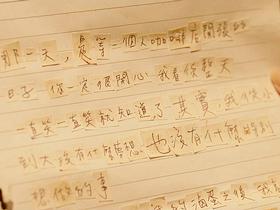 那一天,是第一個人咖啡店開張的
日子 你一定很開心 我看你整天
一直笑一直笑就知道了 其實,我從小
到大沒有什麼夢想 也沒有什麼特別
想做的事
的滷蛋之後 我